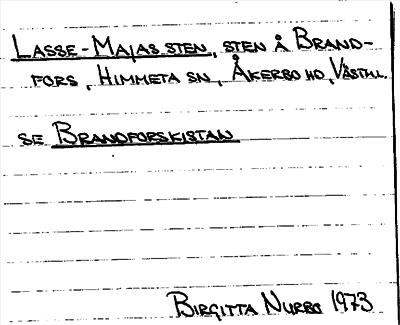 LASSE-MAJAS STEN, STEN Å BRAND-
FORS, HIMMETA SN, ÅKERBO HD, VÄSTML.
SE BRANDFORSKISTAN
BIRGITTA NURBO 1973